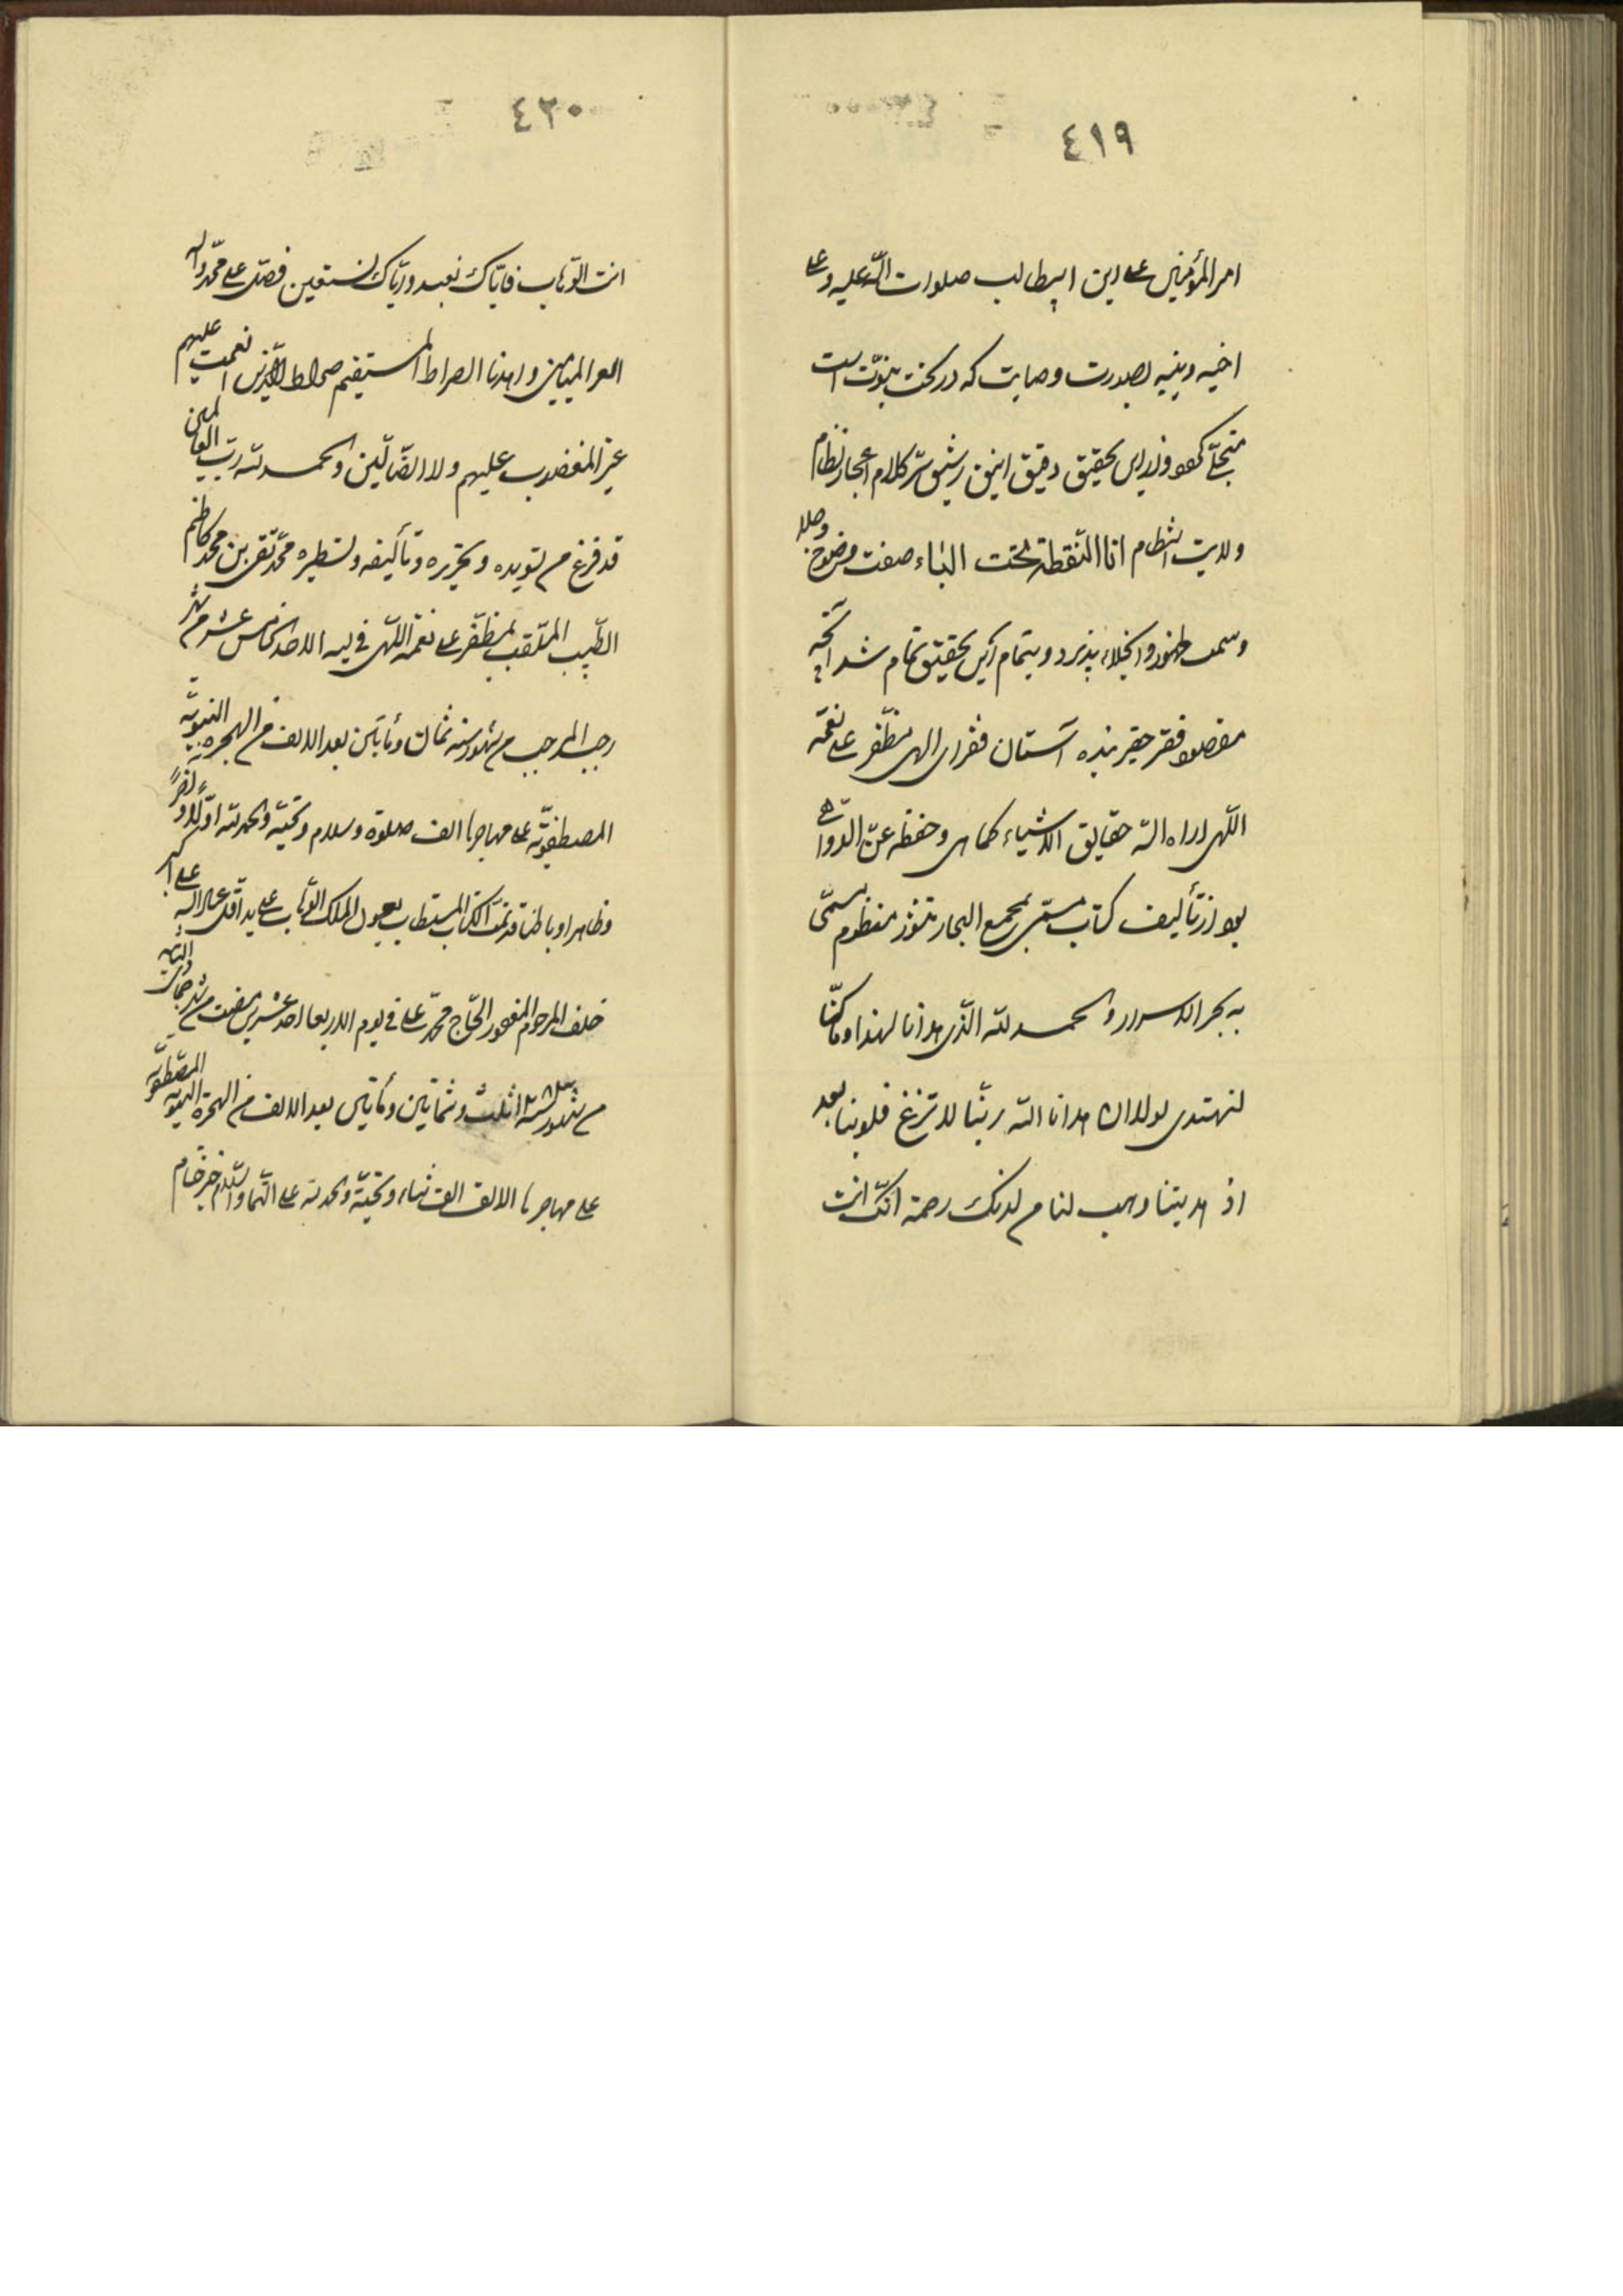 ٤١٩
امیر المؤمنین علی ابن ابیطالب صلوات الله علیه و علی
اخیه و بنیه بصورت وصایت که در تحت نبوّت است
متجلّی کهو و ازین تحقیق دقیق انیق رشیق سّر کلام اعجاز نظام
ولایت انتظام انا النقطة تحت الباء صفت وضوح و جلا
وسمت ظهور و انجلاء پذیرد و بتمام این تحقیق تمام شد آنچه
مقصود فقیر حقیر بنده آستان فقرای الهی مظفر علی نعمة
اللهی اراه الله حقایق الاشیاء کما هی و حفظه عن الدواهی
بود از تألیف کتاب مستمی بمجمع البحار منثور منظوم مسمّی
به بحر الاسرار و الحمد لله الّذی هدانا لهذا و ما کنّا
لنهتدی لولا ان هدانا الله ربّنا لا تزغ قلوبنا بعد
اذ هدیتنا و هب لنا من لدنک رحمة انّک انت
٤٢٠
انت الوّهاب فایّاک نعبد و ایّاک نستعین فصلّ علی محمّد و اله
المیامین و اهدنا الصراط المستقیم صراط الّذین انعمت علیهم
غیر المغضوب علیهم ولا الضّالّین و الحمد لله ربّ العالمین
قد فرغ من تسویده و تحریره و تألیفه و تسطیره محمّد تقی بن محمد کاظم
الطّبیب الملّقب بمظفّر علی نعمة اللّهی فی لیله الاحد الخامس عشر من شهر
رجب المرجب من شهور سنه ثمان و مأتین بعد الالف من الهجره النبویّه
المصطفویّه علی مهاجرها الف صلوة و سلام و تحیّه و الحمد لله اوّلا و آخراً
و ظاهرا و باطنا قد تمّت الکتاب المستطاب بعون الملک الوّهاب علی ید اقلّ عباد الله علی اکبر
خلف المرحوم المغفور الحّاج محمّد علی فی یوم الاربعا احد عشر مضت من شهر جمادی الثانیه
من شهور سنه ثلث و ثمانین و مأتین بعد الالف من الهجرة النبویه المصطفویّه
علی مهاجرها الالف الف ثناء و تحیّة و الحمد لله علی التمام و السّلام خیر ختام